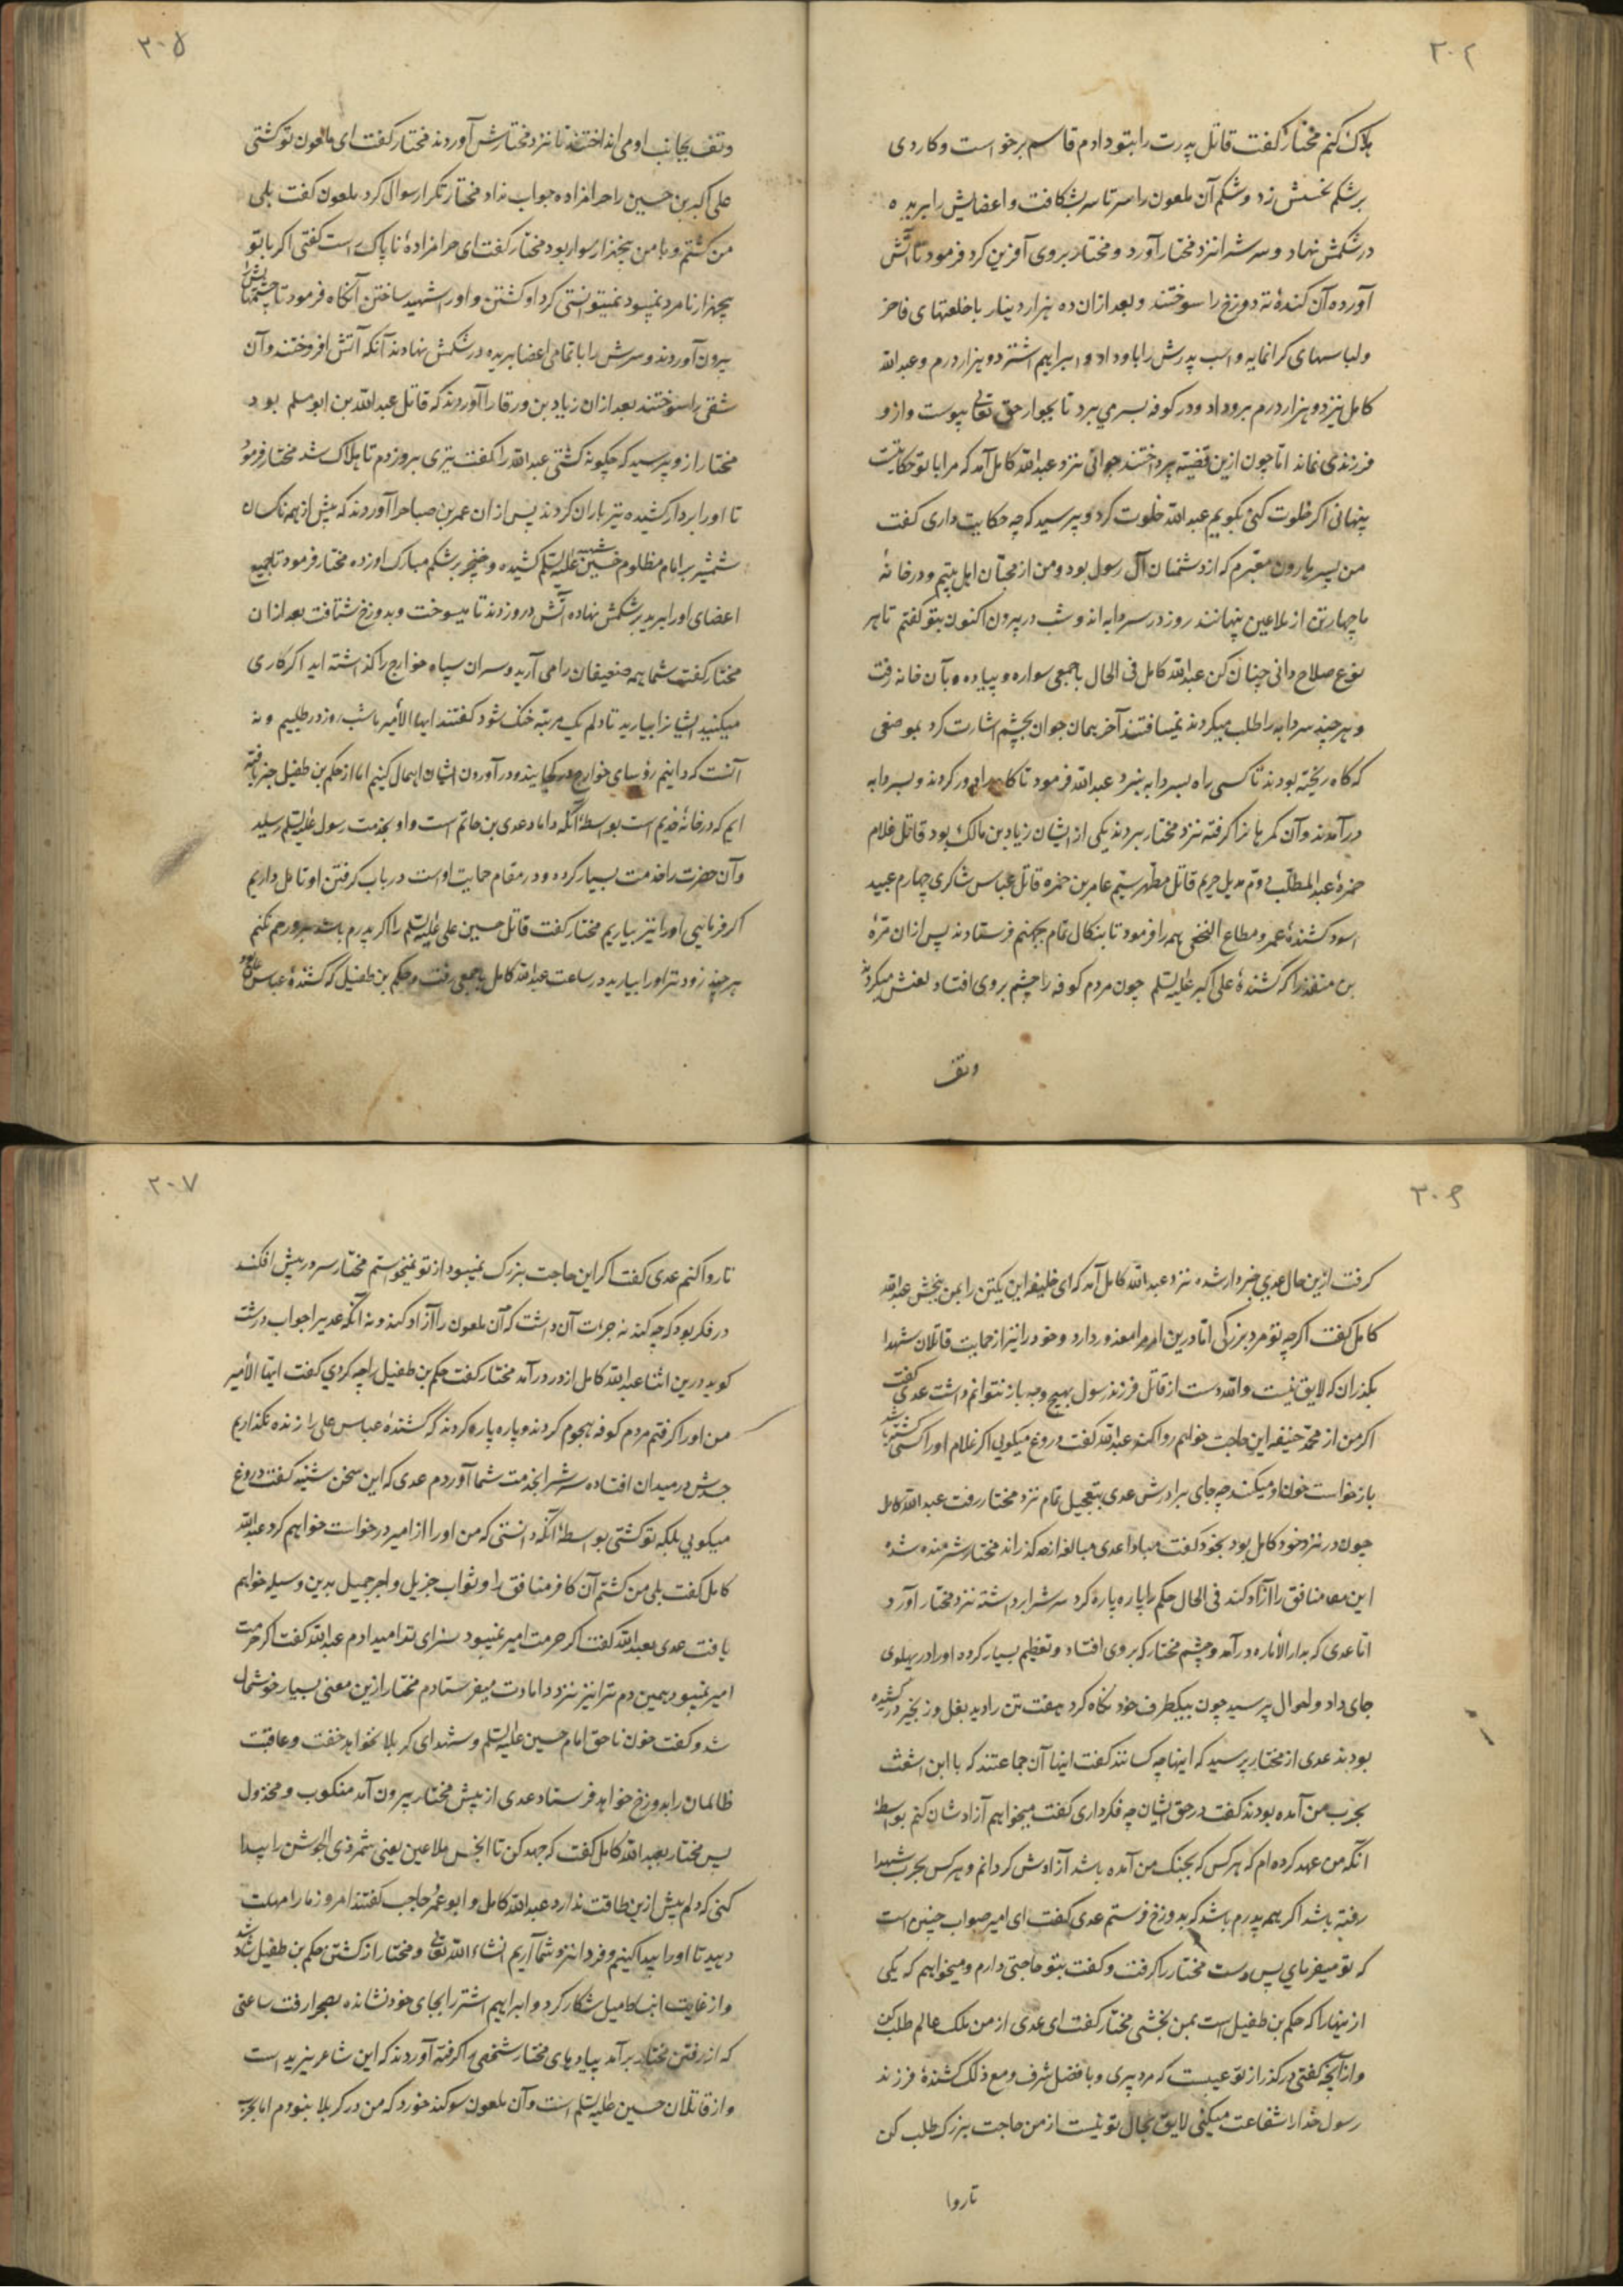 ۲۰۴
هلاک کنم مختار گفت قاتل پدرت را بتو دادم قاسم برخواست و کاردی
بر شکم نحسش زد و شکم آن ملعون را سرتاسر بشکافت و اعضایش را بریده
در شکمش نهاد و سرش را نزد مختار آورد و مختار بروی آفرین کرد فرمود تا آتش
آورده آن کندهٔ ته دوزخ را سوختند و بعد از ان ده هزار دینار با خلعتهای فاخر
و لباسهای کرانمایه و اسب پدرش را باو داد و ابراهیم اشتر دو هزار درم و عبد الله
کامل نیز دو هزار درم برو داد و در کوفه بسر می برد تا بجوار حق تعالی پیوست و ازو
فرزندی نماند اما چون ازین قضیه پرداختند جوانی نزد عبد الله کامل آمد که مرا با تو حکایت
پنهانی اگر خلوت کنی بگویم عبد الله خلوت کرد و پرسید که چه حکایت داری گفت
من پسر هارون مقبرم که از دشمنان آل رسول بود و من از محبان اهل بیتم و در خانهٔ
ما چهار تن از ملاعین پنهانند روز در سردابه اند و شب در بیرون اکنون بتو گفتم تا هر
نوع صلاح دانی چنان کن عبد الله کامل فی الحال با جمعی سواره و پیاده بآن خانه رفت
و هر چند سردابه را طلب میکردند نمییافتند آخر همان جوان بچشم اشارت کرد بموضعی
که کاه ریخته بودند تا کسی راه بسردابه نبرد عبد الله فرمود تا کاه را دور کردند و بسردابه
در آمدند و آن گمرهانرا گرفته نزد مختار بردند یکی از ایشان زیاد بن مالک بود قاتل غلام
حمزهٔ عبد المطلب دوم هدیل حریم قاتل مطهر سیم عامر بن حمزه قاتل عباس شاکری چهارم عبید
اسود کشندهٔ عمرو مطاع النخعی همه را فرمود تا بنکال تمام بجهنم فرستادند پس از ان مرهٔ
بن منقذ را که کشندهٔ علی اکبر علیه السلم چون مردم کوفه را چشم بروی افتاد لعنش میکردند
و تف
۲۰۵
و تف بجانب او می انداختند تا نزد مختارش آوردند مختار گفت ای ملعون تو کشتی
علی اکبر بن حسین را حرامزاده جواب نداد مختار تکرار سوال کرد ملعون گفت بلی
من کشتم و با من پنجهزار سوار بود مختار گفت ای حرامزادهٔ ناپاک راست گفتی اکر با تو
پنجهزار نامرد نمیبود نمیتوانستی کرد او کشتن و اورا شهید ساختن آنکاه فرمود تا چشمهایش را
بیرون آوردند و سرش را با تمامی اعضا بریده در شکمش نهادند آنکه آتش افروختند و آن
شقی را سوختند بعد از ان زیاد بن ورقا را آوردند که قاتل عبد الله بن ابو مسلم بود
مختار ازو پرسید که چگونه کشتی عبد الله را گفت تیری برو زدم تا هلاک شد مختار فرمود
تا اورا بردار کشیده تیر باران کردند پس از ان عمر بن صباح را آوردند که پیش از همه ناکسان
شمشیر بر امام مظلوم شهید حسین علیه السلم کشیده و خنجر بر شکم مبارک او زده مختار فرمود تا جمیع
اعضای اورا برید بر شکمش نهاده آتش درو زدند تا میسوخت و بدوزخ شتافت بعد از ان
مختار گفت شما همه ضعیفان را می آرید و سران سپاه خوارج را گذاشته اید اکر کاری
میکنید ایشانرا بیارید تا دلم یک مرتبه خنک شود گفتند ایها الأمیر ما شب و روز در طلبیم و نه
آنست که دانیم رؤسای خوارج در کجایند و در آوردن ایشان اهمال کنیم اما از حکم بن طفیل خبر یافته
ایم که در خانهٔ خدیم است بواسطهٔ آنکه داماد عدی بن حاتم است و او بخدمت رسول علیه السلم رسید
و آن حضرت را خدمت بسیار کرده و در مقام حمایت اوست در باب گرفتن او تامل داریم
اکر فرمایی اورا نیز بیاریم مختار گفت قاتل حسین علی علیه السلم را اکر پدرم باشد برو رحم نکنم
هر چند زودتر اورا بیارید در ساعت عبد الله کامل با جمعی رفت و حکم بن طفیل که کشندهٔ عباس علی بود
۲۰۶
گرفت ازین حال عدی خبردار شده نزد عبد الله کامل آمد که ای خلیفه این یکتن را بمن بخش عبد الله
کامل گفت اکرچه تو مرد بزرگی اما درین امر مرا معذور دار و خود را نیز از حمایت قاتلان شهدا
بگذران که لایق نیست و الله دست از قاتل فرزند رسول بهیچ وجه باز نتوانم داشت عدی گفت
اکر من از محمد حنیفه این حاجت خواهم روا کند عبد الله گفت دروغ میگویی اکر غلام اورا کسی کشته باشد
بازخواست خون او میکند چه جای برادرش عدی بتعجیل تمام نزد مختار رفت عبد الله کامل
چون در نزد خود کامل بود بخود گفت مبادا عدی مبالغه از حد گذراند مختار شرمنده شده
این منافق را آزاد کند فی الحال حکم را پاره پاره کرد سرش را برداشته نزد مختار آورد
اما عدی که بدار الأماره در آمد و چشم مختار که بروی افتاد و تعظیم بسیار کرده اورا در پهلوی
جای داد و احوال پرسید چون بیکطرف خود نگاه کرد هفت تن را دید بغل و زنجیر در کشیده
بودند عدی از مختار پرسید که اینها چه کسانند گفت اینها آن جماعتند که با ابن اشعث
بحرب من آمده بودند گفت در حق ایشان چه فکر داری گفت میخواهیم آزادشان کنم بواسطهٔ
آنکه من عهد کرده ام که هر کس که بجنک من آمده باشد آزادش گردانم و هر کس بحرب شهدا
رفته باشد اکر همه پدرم باشد که بدوزخ فرستم عدی گفت ای امیر صواب چنین است
که تو میفرمایی پس دست مختار را گرفت و گفت بتو حاجتی دارم و میخواهیم که یکی
از ینها را که حکم بن طفیل است بمن بخشی مختار گفت ای عدی از من ملک عالم طلب کن
و از آنچه گفتی در گذر از تو عیبست که مرد پیری و با فضل شرف و مع ذلک کشندهٔ فرزند
رسول خدا را شفاعت میکنی لایق بحال تو نیست از من حاجت بزرک طلب کن
تا روا
۲۰۷
تا روا کنم عدی گفت اکر این حاجت بزرک نمیبود از تو نمیخواستم مختار سر در پیش افکند
در فکر بود که چه کند نه جرات آن داشت که آن ملعون را آزاد کند و نه آنکه عدی را جواب درشت
گوید درین اثنا عبد الله کامل از در در آمد مختار گفت حکم بن طفیل را چه کردی گفت ایها الأمیر
من اورا گرفتم مردم کوفه هجوم کردند و پاره پاره کردند که کشندهٔ عباس علی را زنده نگذاریم
جسدش در میدان افتاده سرش را بخدمت شما آوردم عدی که این سخن شنید گفت دروغ
میگویی بلکه تو کشتی بواسطهٔ آنکه دانستی که من اورا از امیر درخواست خواهیم کرد عبد الله
کامل گفت بلی من کشتم آن کافر منافق را و ثواب جزیل و اجر جمیل بدین وسیله خواهم
یافت عدی بعبد الله گفت اکر حرمت امیر نمیبود سزای ترا میدادم عبد الله گفت اکر حرمت
امیر نمیبود همین دم ترا نیز نزد دامادت میفرستادم مختار ازین معنی بسیار خوشحال
شد و گفت خون ناحق امام حسین علیه السلم و شهدای کربلا نخواهد خفت و عاقبت
ظالمان را بدوزخ خواهد فرستاد عدی از پیش مختار بیرون آمد منکوب و مخذول
پس مختار بعبد الله کامل گفت که جهد کن تا انجس ملاعین یعنی شمر ذی الجوشن را پیدا
کنی که دلم بیش ازین طاقت ندارد عبد الله کامل و ابو عمر حاجب گفتند امروز ما را مهلت
دهید تا اورا پیدا کنیم و فردا نزد شما آریم انشاء الله تعالی و مختار از کشتن حکم بن طفیل شاد شد
و از غایت انبساط میل شکار کرد و ابراهیم اشتر را بجای خود نشانده بصحرا رفت ساعتی
که از رفتن مختار بر آمد پیادهای مختار شخصی را گرفته آوردند که این شاعر یزید است
و از قاتلان حسین علیه السلم است و آن ملعون سوکند خورد که من در کربلا نبودم اما بحرب